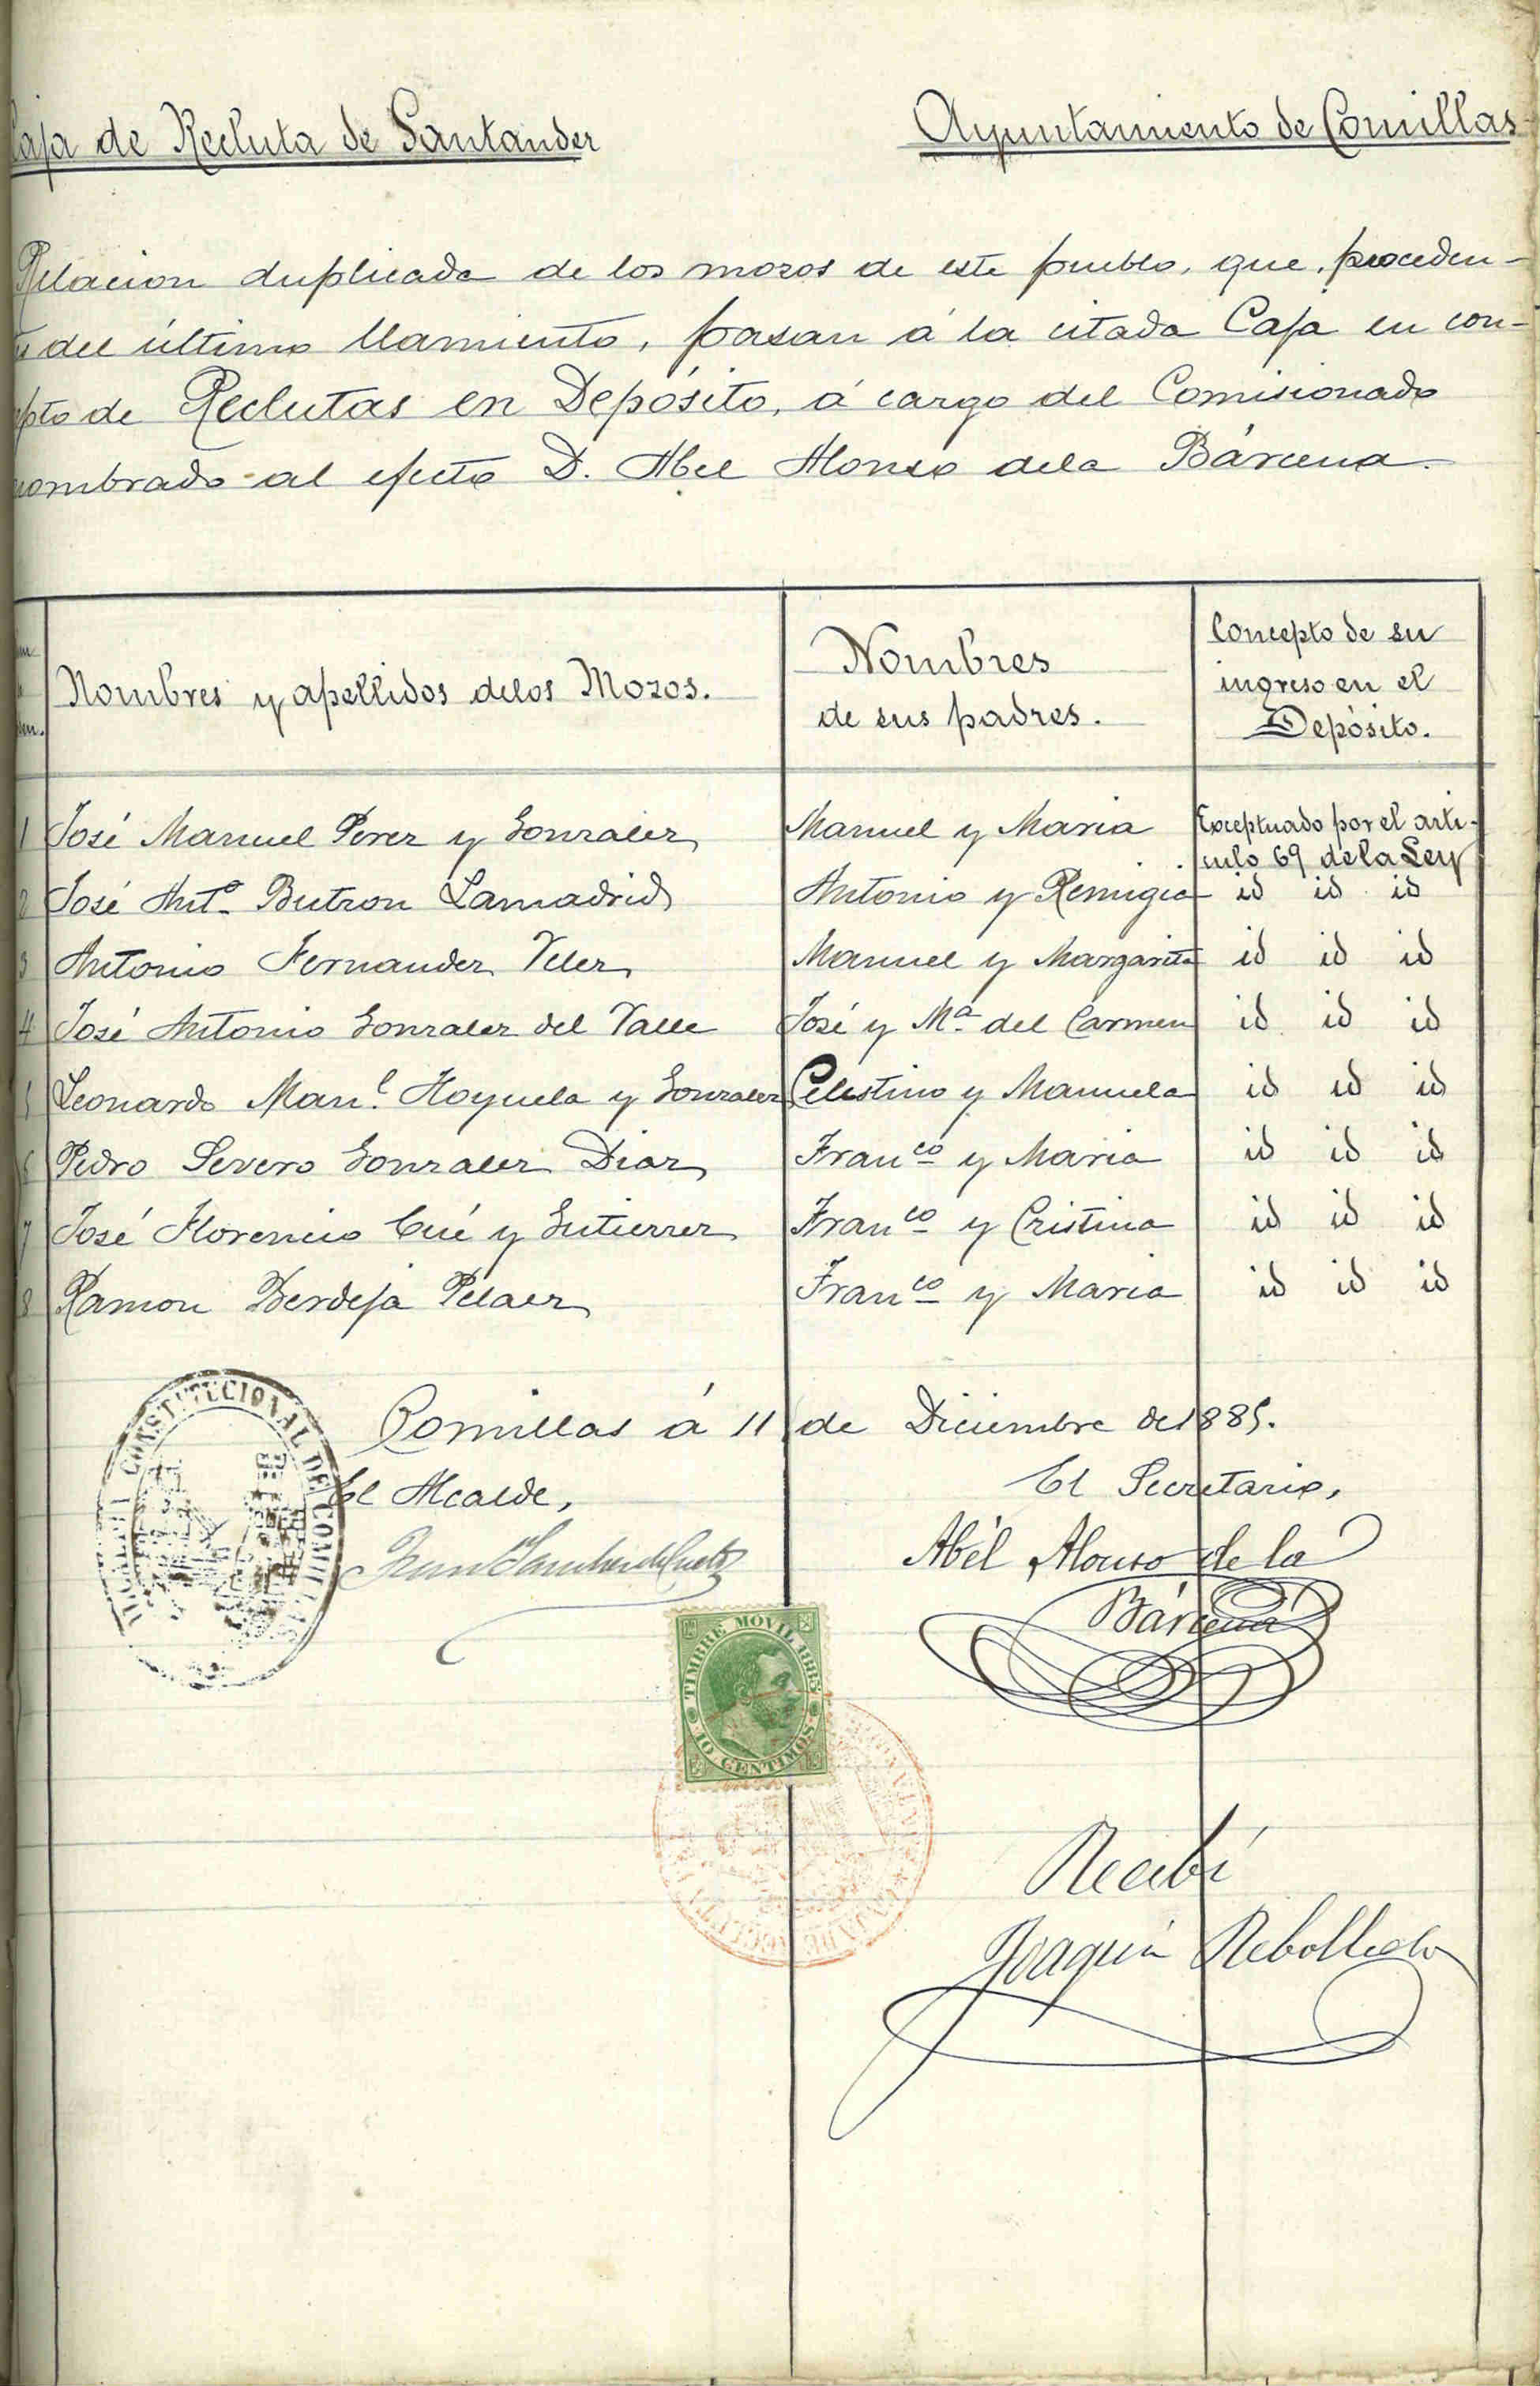 Caja de Recluta de Santander
Ayuntamiento de Comillas
Relacion duplicada de los mozos de este pueblo, que, proceden-
te del último llamiento, pasan á la citada Caja en con-
cepto de Reclutas en Depósito, á cargo del Comisionado
nombrado al efecto D. Abel Alonso dela Bárcena.
Nombres y apellidos delos Mozos.
Nombres
de sus padres.
Concepto de su
ingreso en el
Depósito.
1 José Manuel Perez y Gonzalez Manuel y Maria Exceptuado por el arti-
culo 69 dela Ley
2 José Antº Butron Lamadrid Antonio y Remigia id id id
3 Antonio Fernandez Velez Manuel y Margarita id id id
4 José Antonio Gonzalez del Valle José y Mª del Carmen id id id
5 Leonardo Manl. Hoyuela y Gonzalez Celestino y Manuela id id id
6 Pedro Severo Gonzalez Diaz Franco y Maria id id id
7 José Florencio Cué y Gutierrez Franco y Cristina id id id
8 Ramon Berdeja Pelaez Franco y Maria id id id
Comillas á 11 de Diciembre de 1885.
El Alcalde,
El Secretario,
Abél Alonso de la
Bárcena
CONSTITUCIONAL DE COMILLAS
TIMBRE MOVIL 1885
10 CENTIMOS
CAJA DE RECLUTA
Recibí
Joaquin Rebolledo